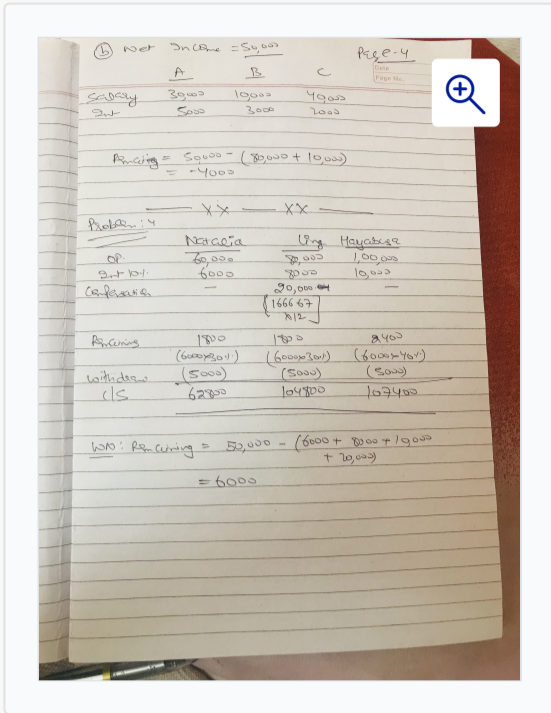 (b) Net Income = 50,000
Page-4
Date
Page No.
A B C
Salary 30,000 10,000 40,000
Int 5000 3000 2000
Remaining = 50,000 - (80,000 + 10,000)
= -4000
XX XX
Problem: 4
Natalia Ling Hayabusa
OP. 60,000 80,000 1,00,000
Int 10% 6000 8000 10,000
Compensation — 20,000 —
[1666.67
x12]
Remaining 1800 1800 2400
(6000x30%) (6000x30%) (6000x40%)
withdraw (5000) (5000) (5000)
C/S 62800 104800 107400
WN: Remaining = 50,000 - (6000 + 8000 + 10,000
+ 20,000)
= 6000